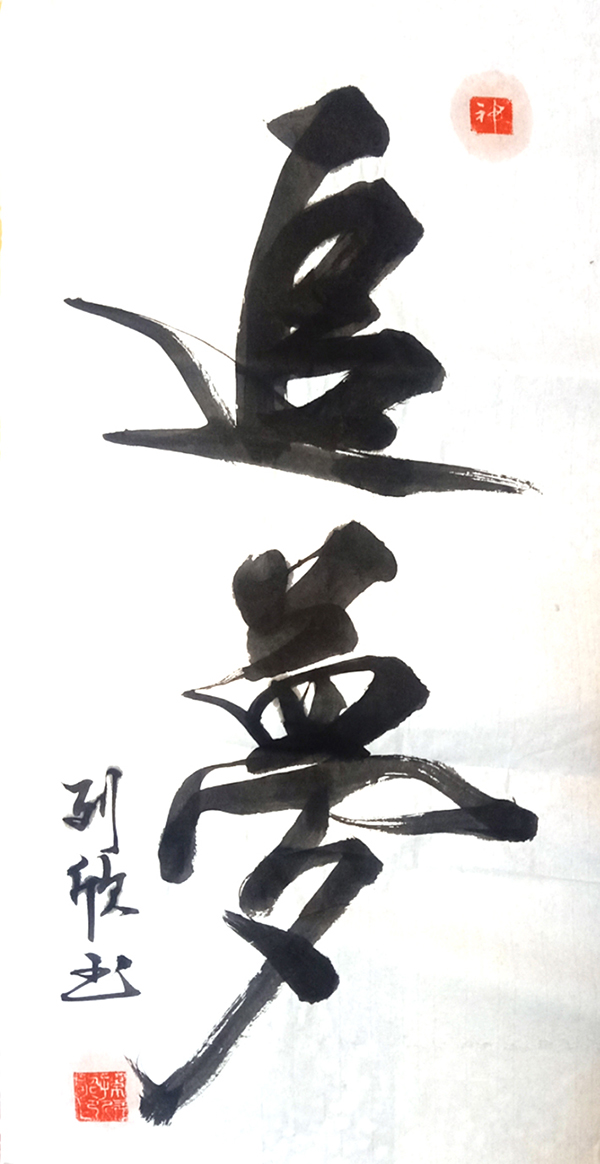 追夢
列欣书
神